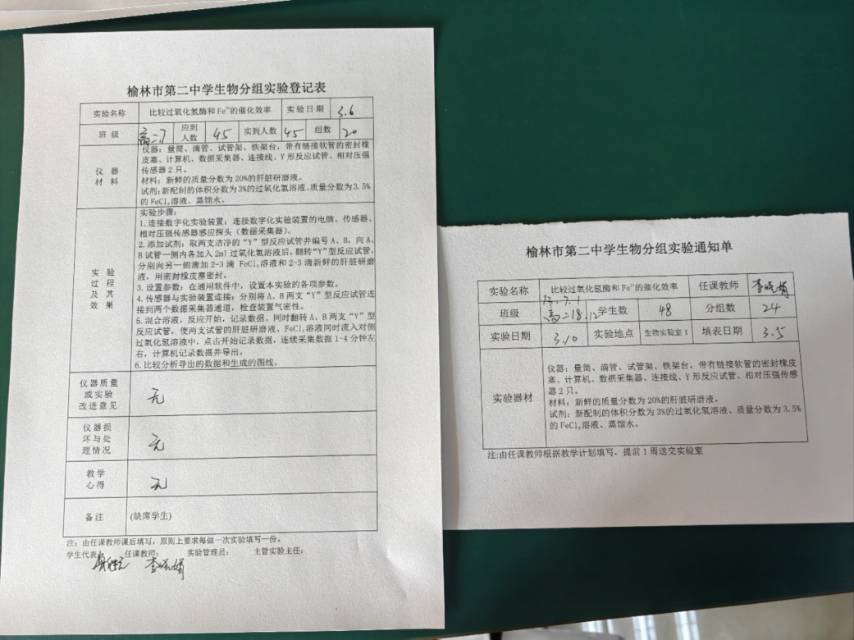 榆林市第二中学生物分组实验登记表
实验名称 比较过氧化氢酶和Fe³⁺的催化效率 实验日期 3.6
班级 高二7 应到人数 45 实到人数 45 组数 20
仪器材料
仪器：量筒、滴管、试管架、铁架台，带有链接软管的密封橡
皮塞、计算机、数据采集器、连接线、Y形反应试管、相对压强
传感器2只。
材料：新鲜的质量分数为20%的肝脏研磨液。
试剂：新配制的体积分数为3%的过氧化氢溶液、质量分数为3.5%
的FeCl₃溶液、蒸馏水。
实验过程及其效果
实验步骤：
1.连接数字化实验装置：连接数字化实验装置的电脑、传感器、
相对压强传感器感应探头（数据采集器）。
2.添加试剂：取两支洁净的“Y”型反应试管并编号A、B，向A、
B试管一侧内各加入2ml过氧化氢溶液后，翻转“Y”型反应试管，
分别向另一侧滴加2-3滴 FeCl₃溶液和2-3滴新鲜的肝脏研磨
液，用密封橡皮塞密封。
3.设置参数：在通用软件中，设置本实验的各项参数。
4.传感器与实验装置连接：分别将A、B两支“Y”型反应试管连
接到两个数据采集器通道，检查装置气密性。
5.混合溶液，反应开始，记录数据、同时翻转A、B两支“Y”型
反应试管，使两支试管的肝脏研磨液、FeCl₃溶液同时流入对侧
过氧化氢溶液中，点击开始记录数据，连续采集数据1-4分钟左
右，计算机记录数据并导出。
6.比较分析导出的数据和生成的图线。
仪器质量或实验改进意见 无
仪器损坏与处理情况 无
教学心得 无
备注 (缺席学生)
注：由任课教师课后填写，原则上要求每做一次实验填写一份。
学生代表： 任课教师： 实验管理员： 主管实验主任：
榆林市第二中学生物分组实验通知单
实验名称 比较过氧化氢酶和Fe³⁺的催化效率 任课教师
班级 高二18.12 学生数 48 分组数 24
实验日期 3.10 实验地点 生物实验室1 填表日期 3.5
实验器材
仪器：量筒、滴管、试管架、铁架台，带有链接软管的密封橡皮
塞、计算机、数据采集器、连接线、Y形反应试管、相对压强传感
器2只。
材料：新鲜的质量分数为20%的肝脏研磨液。
试剂：新配制的体积分数为3%的过氧化氢溶液、质量分数为3.5%
的FeCl₃溶液、蒸馏水。
注：由任课教师根据教学计划填写，提前1周送交实验室